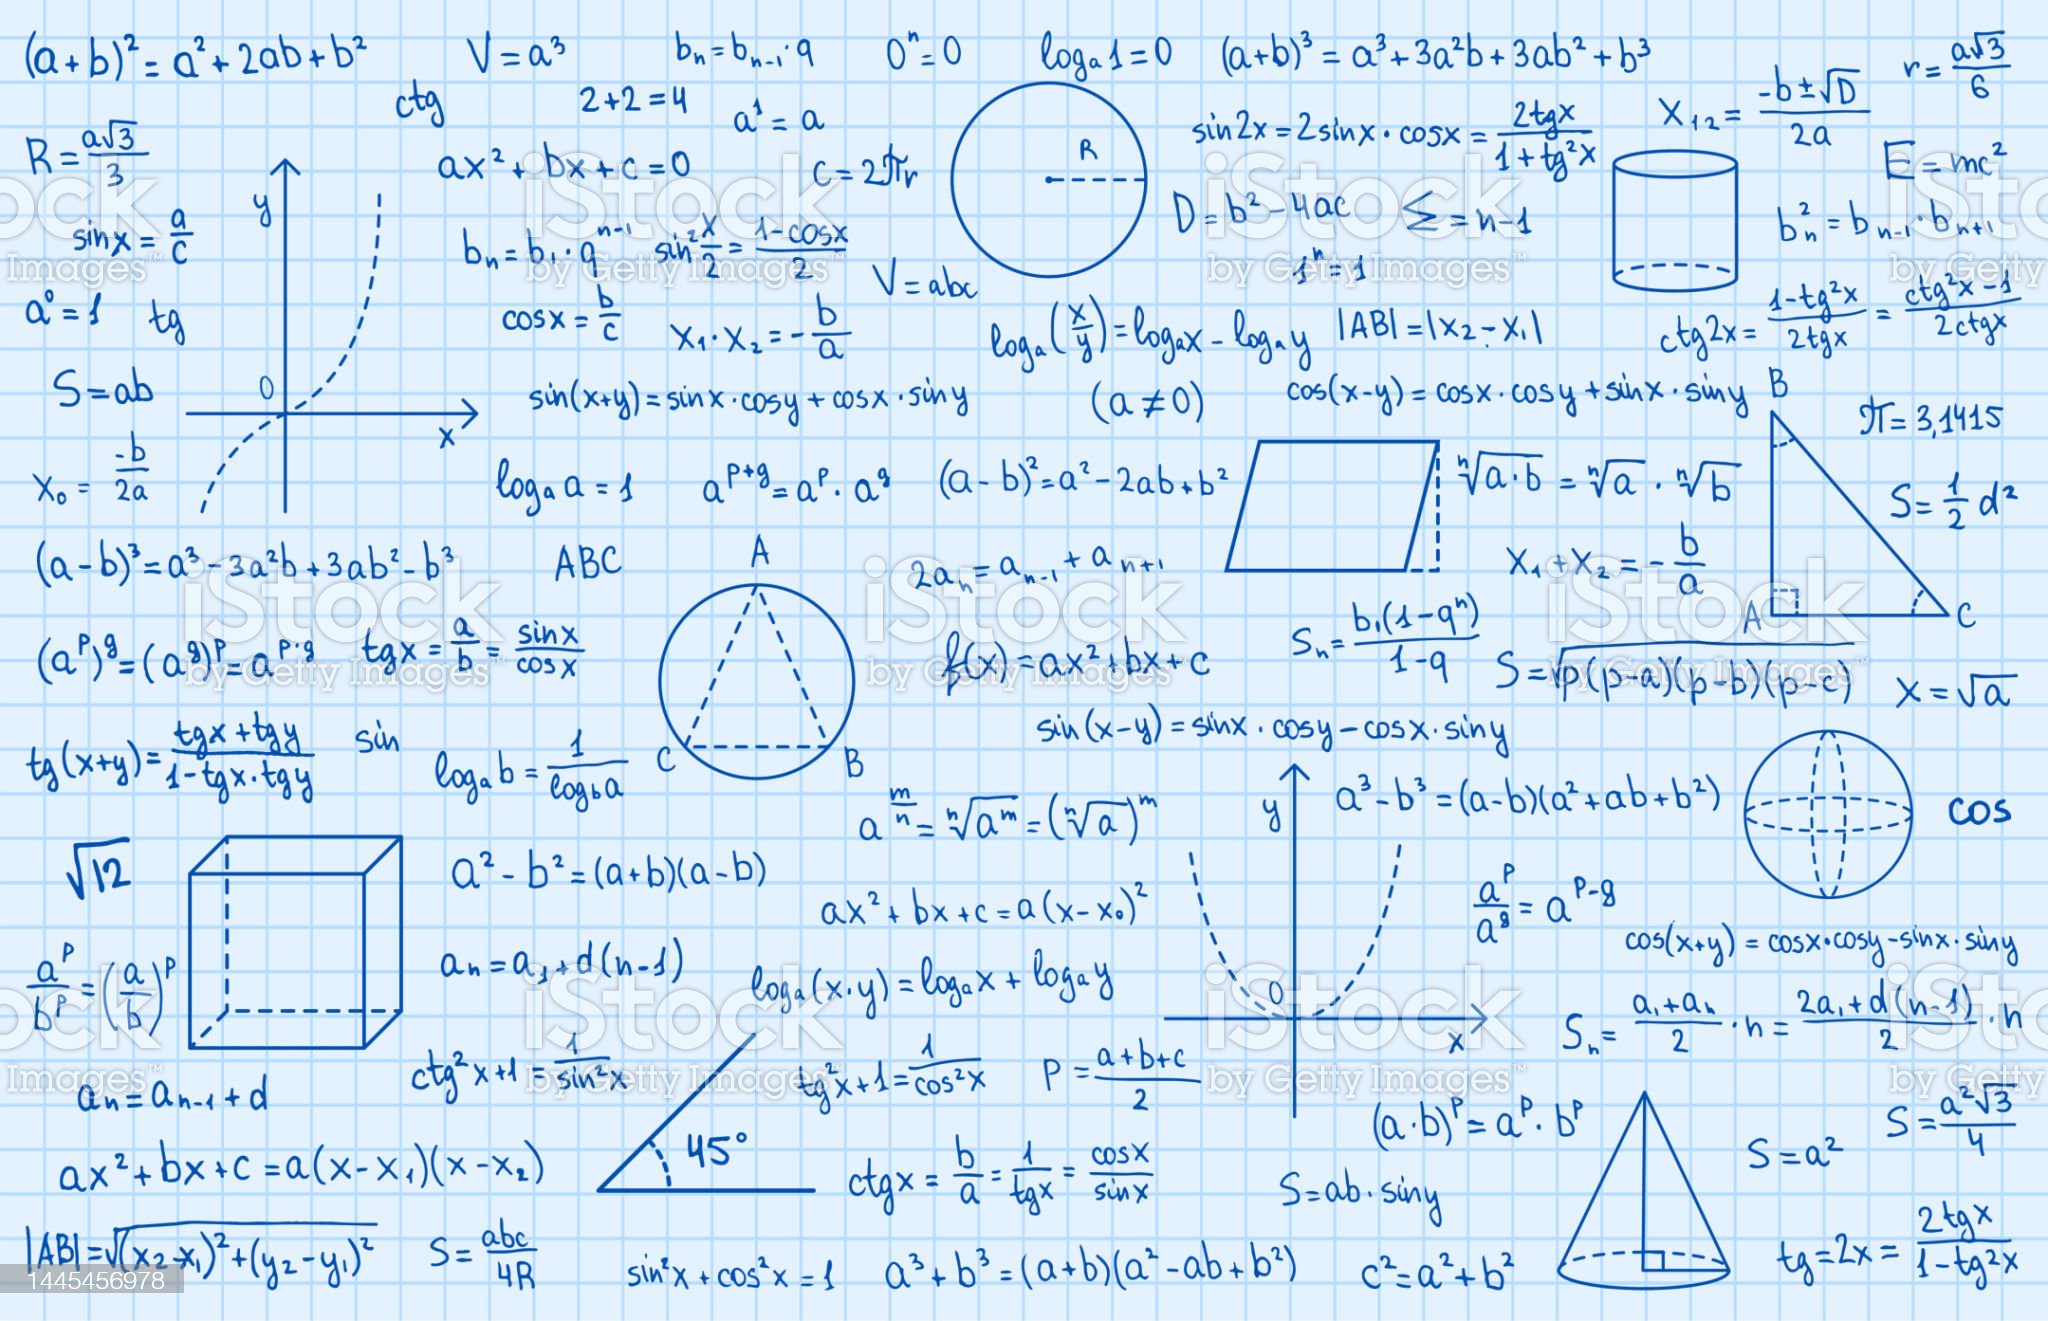 (a+b)² = a² + 2ab + b²
V = a³
bₙ = bₙ₋₁ · q
0ⁿ = 0
logₐ1 = 0
(a+b)³ = a³ + 3a²b + 3ab² + b³
r = a√3/6
ctg
2+2=4
a¹ = a
sin2x = 2sinx · cosx = 2tgx/(1+tg²x)
x₁₂ = (-b±√D)/2a
R = a√3/3
ax² + bx + c = 0
c = 2πr
R
E = mc²
y
sinx = a/c
bₙ = b₁ · qⁿ⁻¹
sin² x/2 = (1-cosx)/2
D = b² - 4ac
Σ = n-1
bₙ² = bₙ₋₁ · bₙ₊₁
V = abc
1ⁿ = 1
a⁰ = 1
tg
cosx = b/c
x₁ · x₂ = - b/a
logₐ(x/y) = logₐx - logₐy
|AB| = |x₂ - x₁|
ctg2x = (1-tg²x)/2tgx = (ctg²x-1)/2ctgx
S = ab
0
x
sin(x+y) = sinx · cosy + cosx · siny
(a ≠ 0)
cos(x-y) = cosx · cosy + sinx · siny
B
π = 3,1415
x₀ = -b/2a
logₐa = 1
aᵖ⁺ᵍ = aᵖ · aᵍ
(a-b)² = a² - 2ab + b²
ⁿ√(a·b) = ⁿ√a · ⁿ√b
S = 1/2 d²
(a-b)³ = a³ - 3a²b + 3ab² - b³
ABC
A
2aₙ = aₙ₋₁ + aₙ₊₁
x₁ + x₂ = - b/a
A
C
(aᵖ)ᵍ = (aᵍ)ᵖ = aᵖ·ᵍ
tgx = a/b = sinx/cosx
f(x) = ax² + bx + c
Sₙ = b₁(1-qⁿ)/(1-q)
S = √(p(p-a)(p-b)(p-c))
x = √a
tg(x+y) = (tgx+tgy)/(1-tgx·tgy)
sin
logₐb = 1/log_b a
C
B
sin(x-y) = sinx · cosy - cosx · siny
y
a³ - b³ = (a-b)(a² + ab + b²)
cos
a^(m/n) = ⁿ√aᵐ = (ⁿ√a)ᵐ
√12
a² - b² = (a+b)(a-b)
ax² + bx + c = a(x-x₀)²
aᵖ/aᵍ = aᵖ⁻ᵍ
cos(x+y) = cosx·cosy - sinx·siny
aᵖ/bᵖ = (a/b)ᵖ
aₙ = a₁ + d(n-1)
logₐ(x·y) = logₐx + logₐy
0
x
Sₙ = (a₁+aₙ)/2 · n = (2a₁+d(n-1))/2 · n
aₙ = aₙ₋₁ + d
ctg²x+1 = 1/sin²x
tg²x+1 = 1/cos²x
P = (a+b+c)/2
(a·b)ᵖ = aᵖ · bᵖ
S = a²
S = a²√3/4
ax² + bx + c = a(x-x₁)(x-x₂)
45°
ctgx = b/a = 1/tgx = cosx/sinx
S = ab · siny
|AB| = √((x₂-x₁)² + (y₂-y₁)²)
S = abc/4R
sin²x + cos²x = 1
a³ + b³ = (a+b)(a² - ab + b²)
c² = a² + b²
tg=2x = 2tgx/(1-tg²x)
iStock
by Getty Images™
1445456978